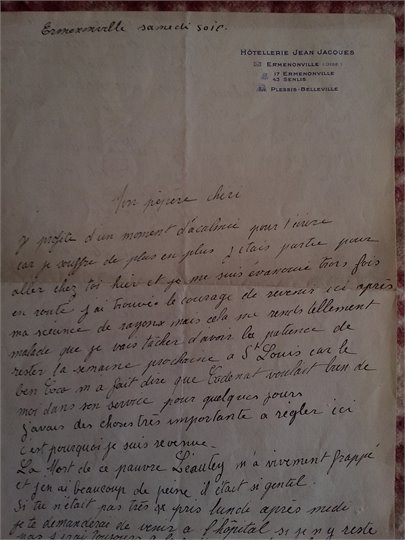 Ermenonville samedi soir.
HÔTELLERIE JEAN JACQUES
ERMENONVILLE (OISE)
17 ERMENONVILLE
43 SENLIS
PLESSIS-BELLEVILLE
Mon pépère cheri
Je profite d'un moment d'acalmie pour t'ecrire
car je souffre de plus en plus j'etais partie pour
aller chez toi hier et je me suis évanouie trois fois
en route j'ai trouvée le courage de revenir ici après
ma sceance de rayons mais cela me rends tellement
malade que je vais tâcher d'avoir la patience de
rester la semaine prochaine a St Louis car le
ben Coca m'a fait dire que voulait bien de
moi dans son service pour quelques jours
j'avais des choses très importante a regler ici
c'est pourquoi je suis revenue -
La Mort de ce pauvre Léautey m'a vivement frappé
et j'en ai beaucoup de peine il était si gentil.
Si tu n'était pas très pris lundi après midi
je te demanderai de venir a l'hôpital si je n'y reste
pas j'irai toujours